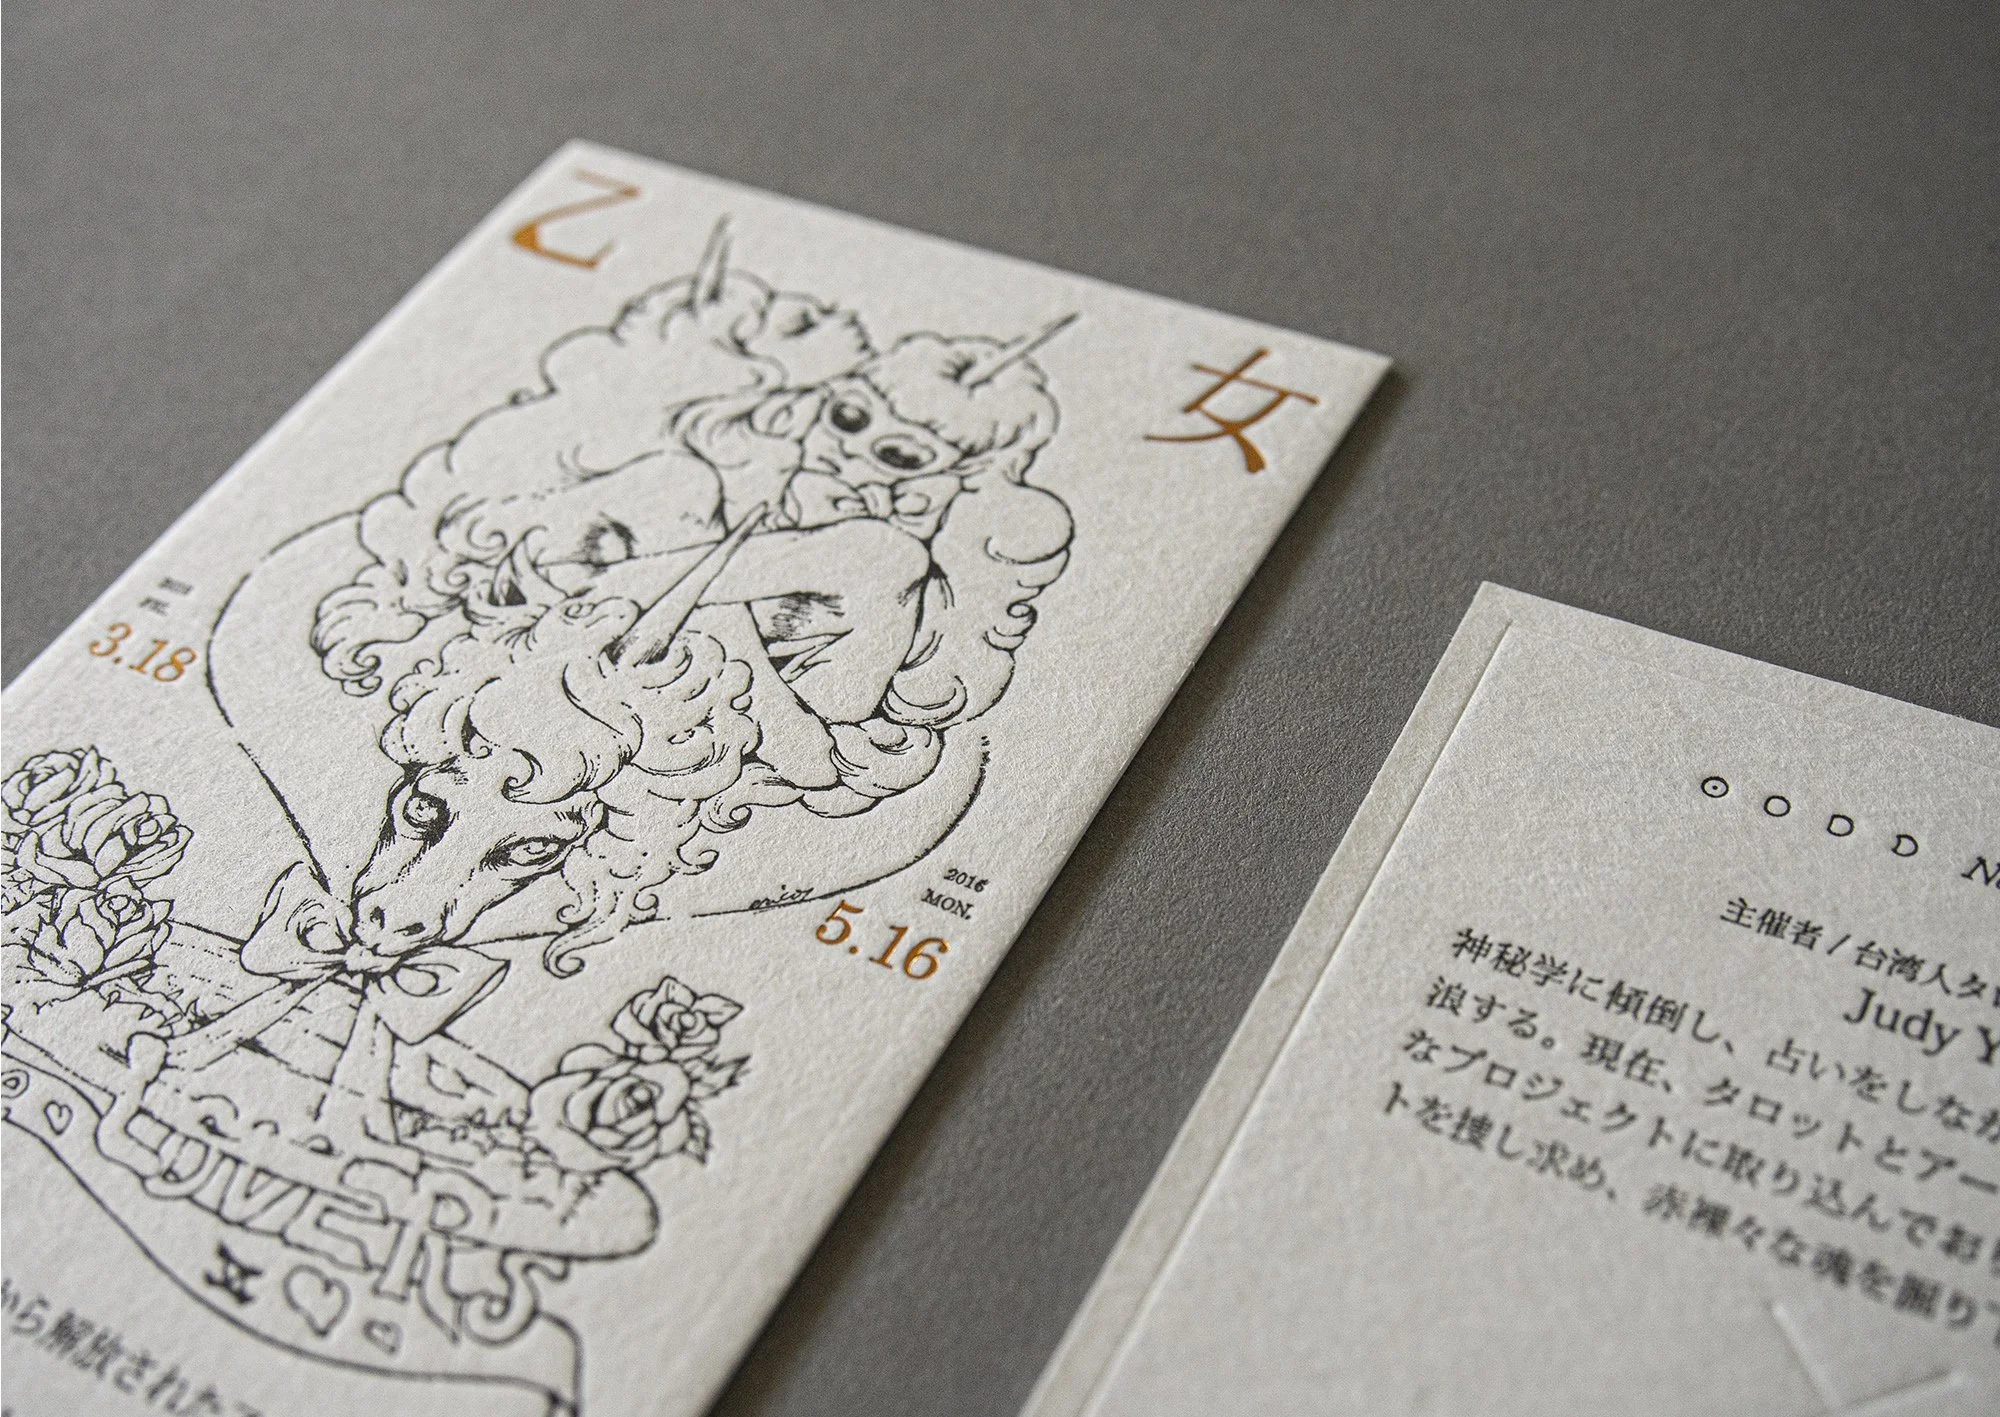 乙 女
3.18
2016
MON.
5.16
enicos
LOVERS
から解放された
⊙ O D D
主催者 / 台湾人タ
Judy Y
神秘学に傾倒し、占いをしなが
浪する。現在、タロットとアー
なプロジェクトに取り込んでおり
トを捜し求め、赤裸々な魂を掘り